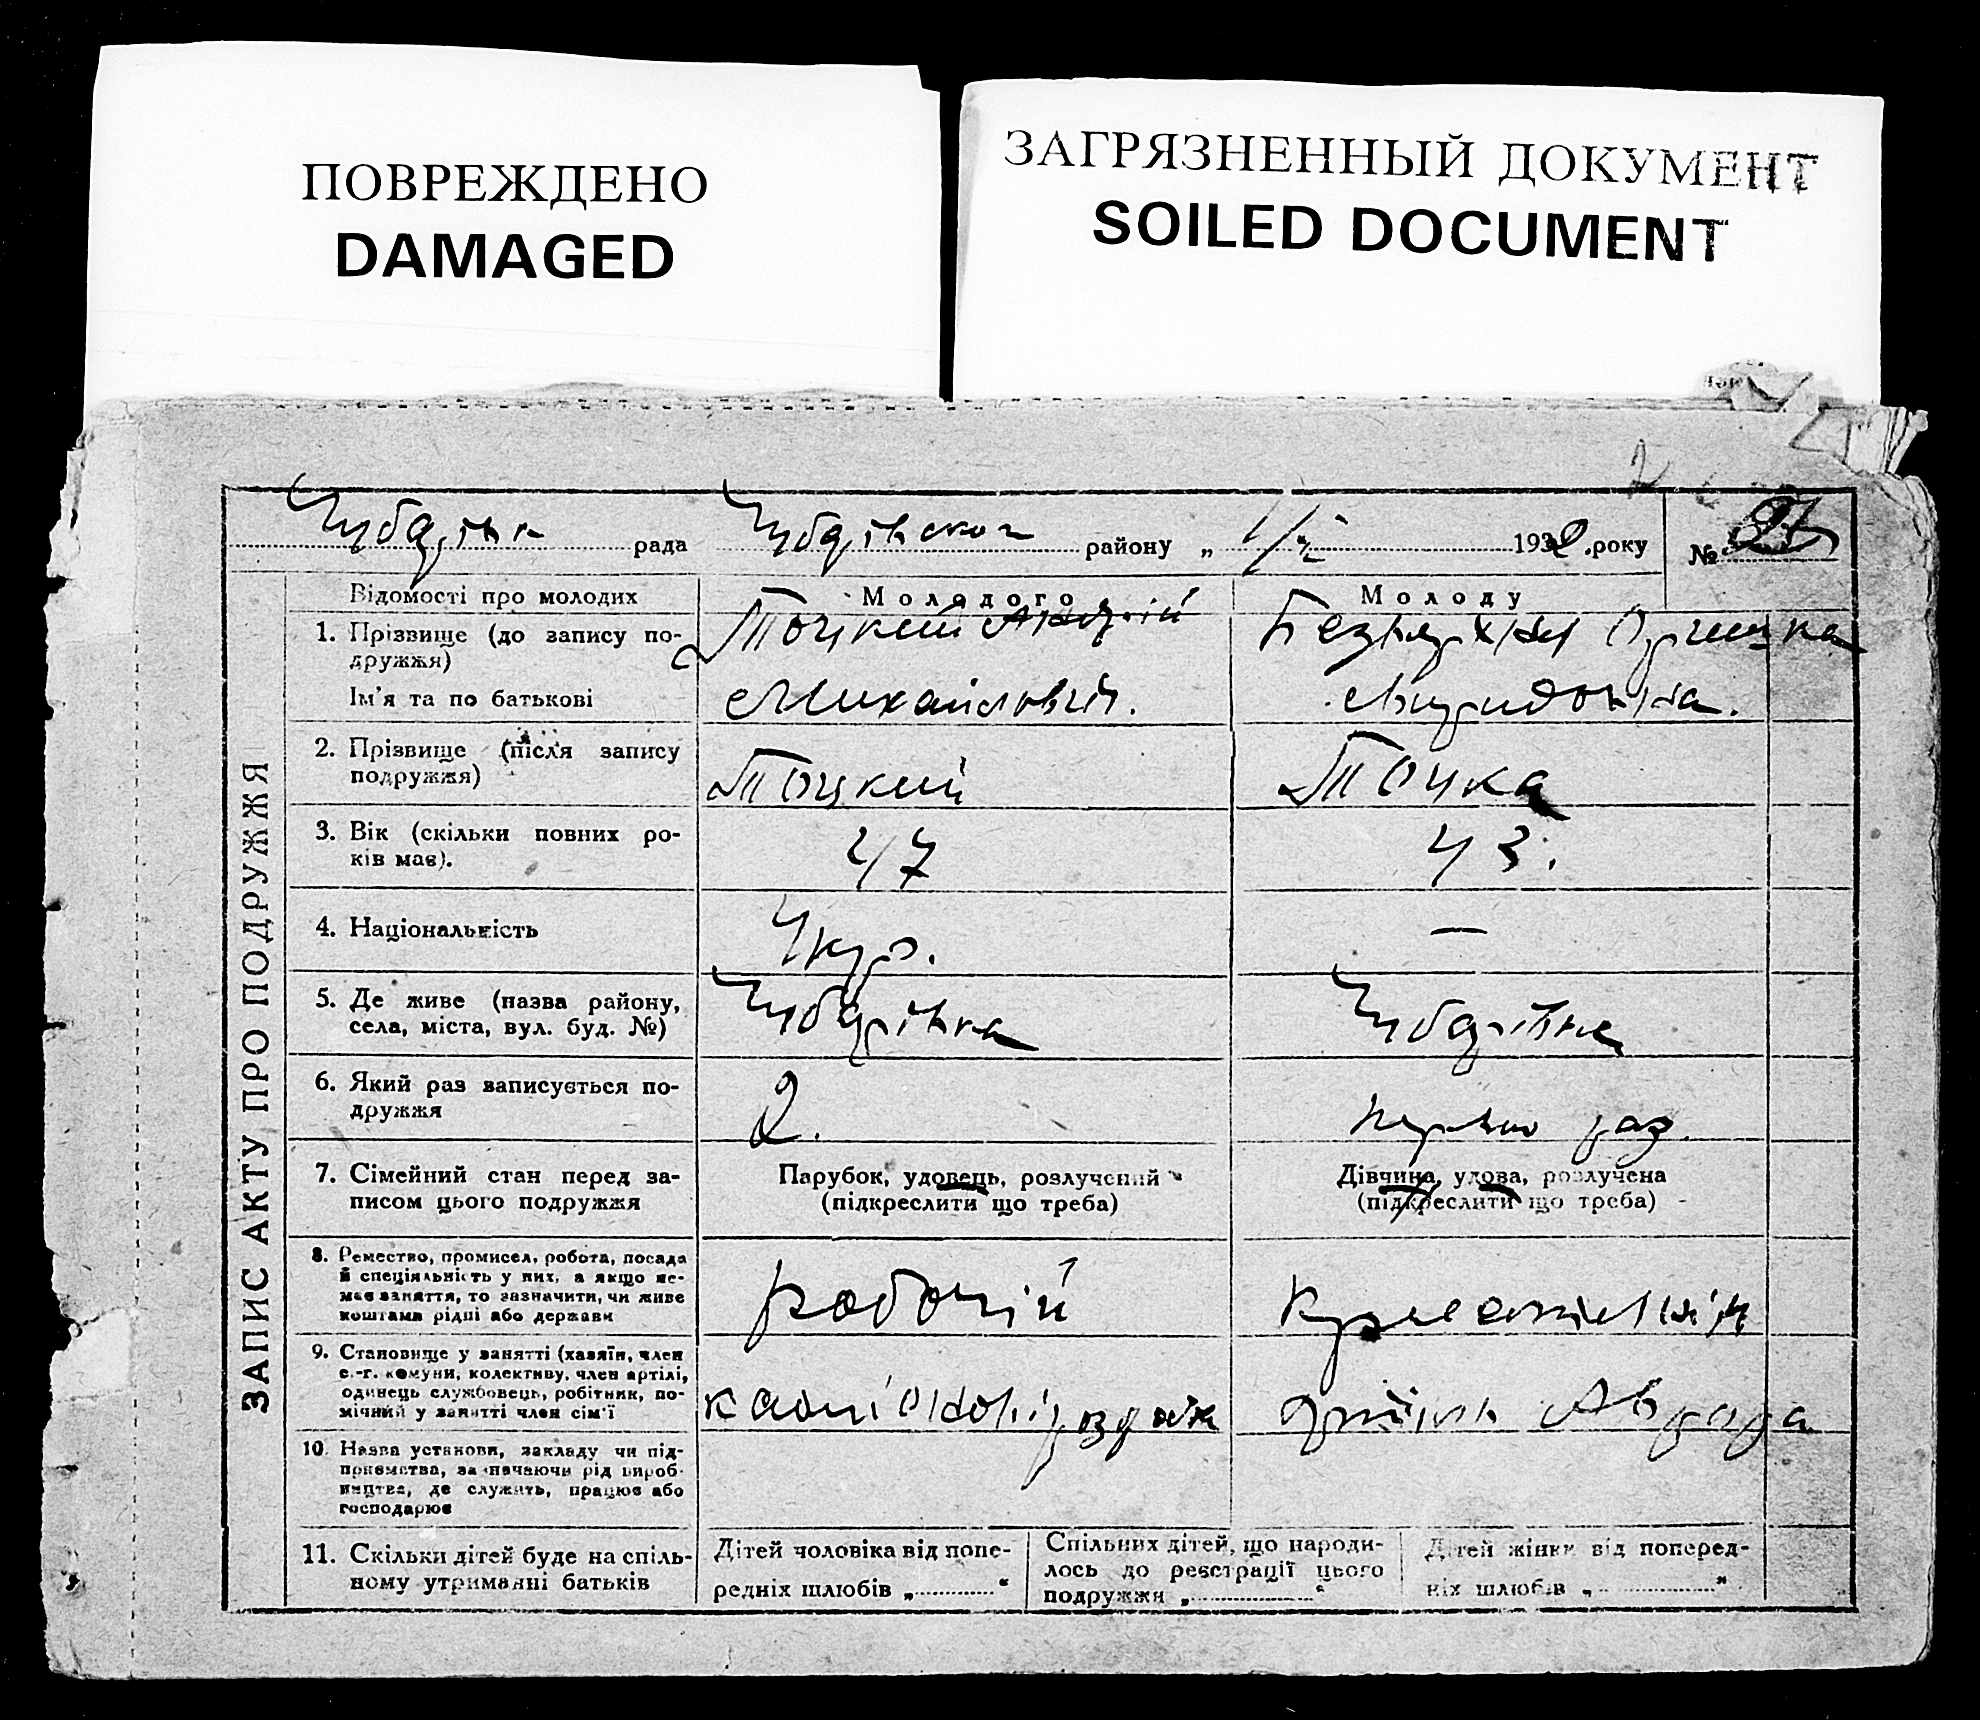 ПОВРЕЖДЕНО
DAMAGED
ЗАГРЯЗНЕННЫЙ ДОКУМЕНТ
SOILED DOCUMENT
рада району „ 193 .року №
ЗАПИС АКТУ ПРО ПОДРУЖЖЯ
Відомості про молодих Молодого Молоду
1. Прізвище (до запису по-
дружжя)
Точкий
Ім'я та по батькові
Михайлович.
2. Прізвище (після запису
подружжя)
Точкий Точка
3. Вік (скільки повних ро-
ків має).
47 43.
4. Національність
Укр. —
5. Де живе (назва району,
села, міста, вул. буд. №)
Чубарівка Чубарівка
6. Який раз записується по-
дружжя
2. раз
7. Сімейний стан перед за-
писом цього подружжя
Парубок, удовець, розлучений
(підкреслити що треба)
Дівчина, удова, розлучена
(підкреслити що треба)
8. Ремество, промисел, робота, посада
й спеціяльність у них, а якщо не-
має заняття, то зазначити, чи живе
коштами рідні або держави
робочій
9. Становище у занятті (хазяїн, член
с.-г. комуни, колективу, член артілі,
одинець службовець, робітник, по-
мічний у занятті член сім'ї
10. Назва установи, закладу чи під-
приємства, зазначаючи рід вироб-
ництва, де служить, працює або
господарює
11. Скільки дітей буде на спіль-
ному утриманні батьків
Дітей чоловіка від попе-
редніх шлюбів „ “
Спільних дітей, що народи-
лось до реєстрації цього
подружжя „ “
Дітей жінки від поперед-
ніх шлюбів „ “